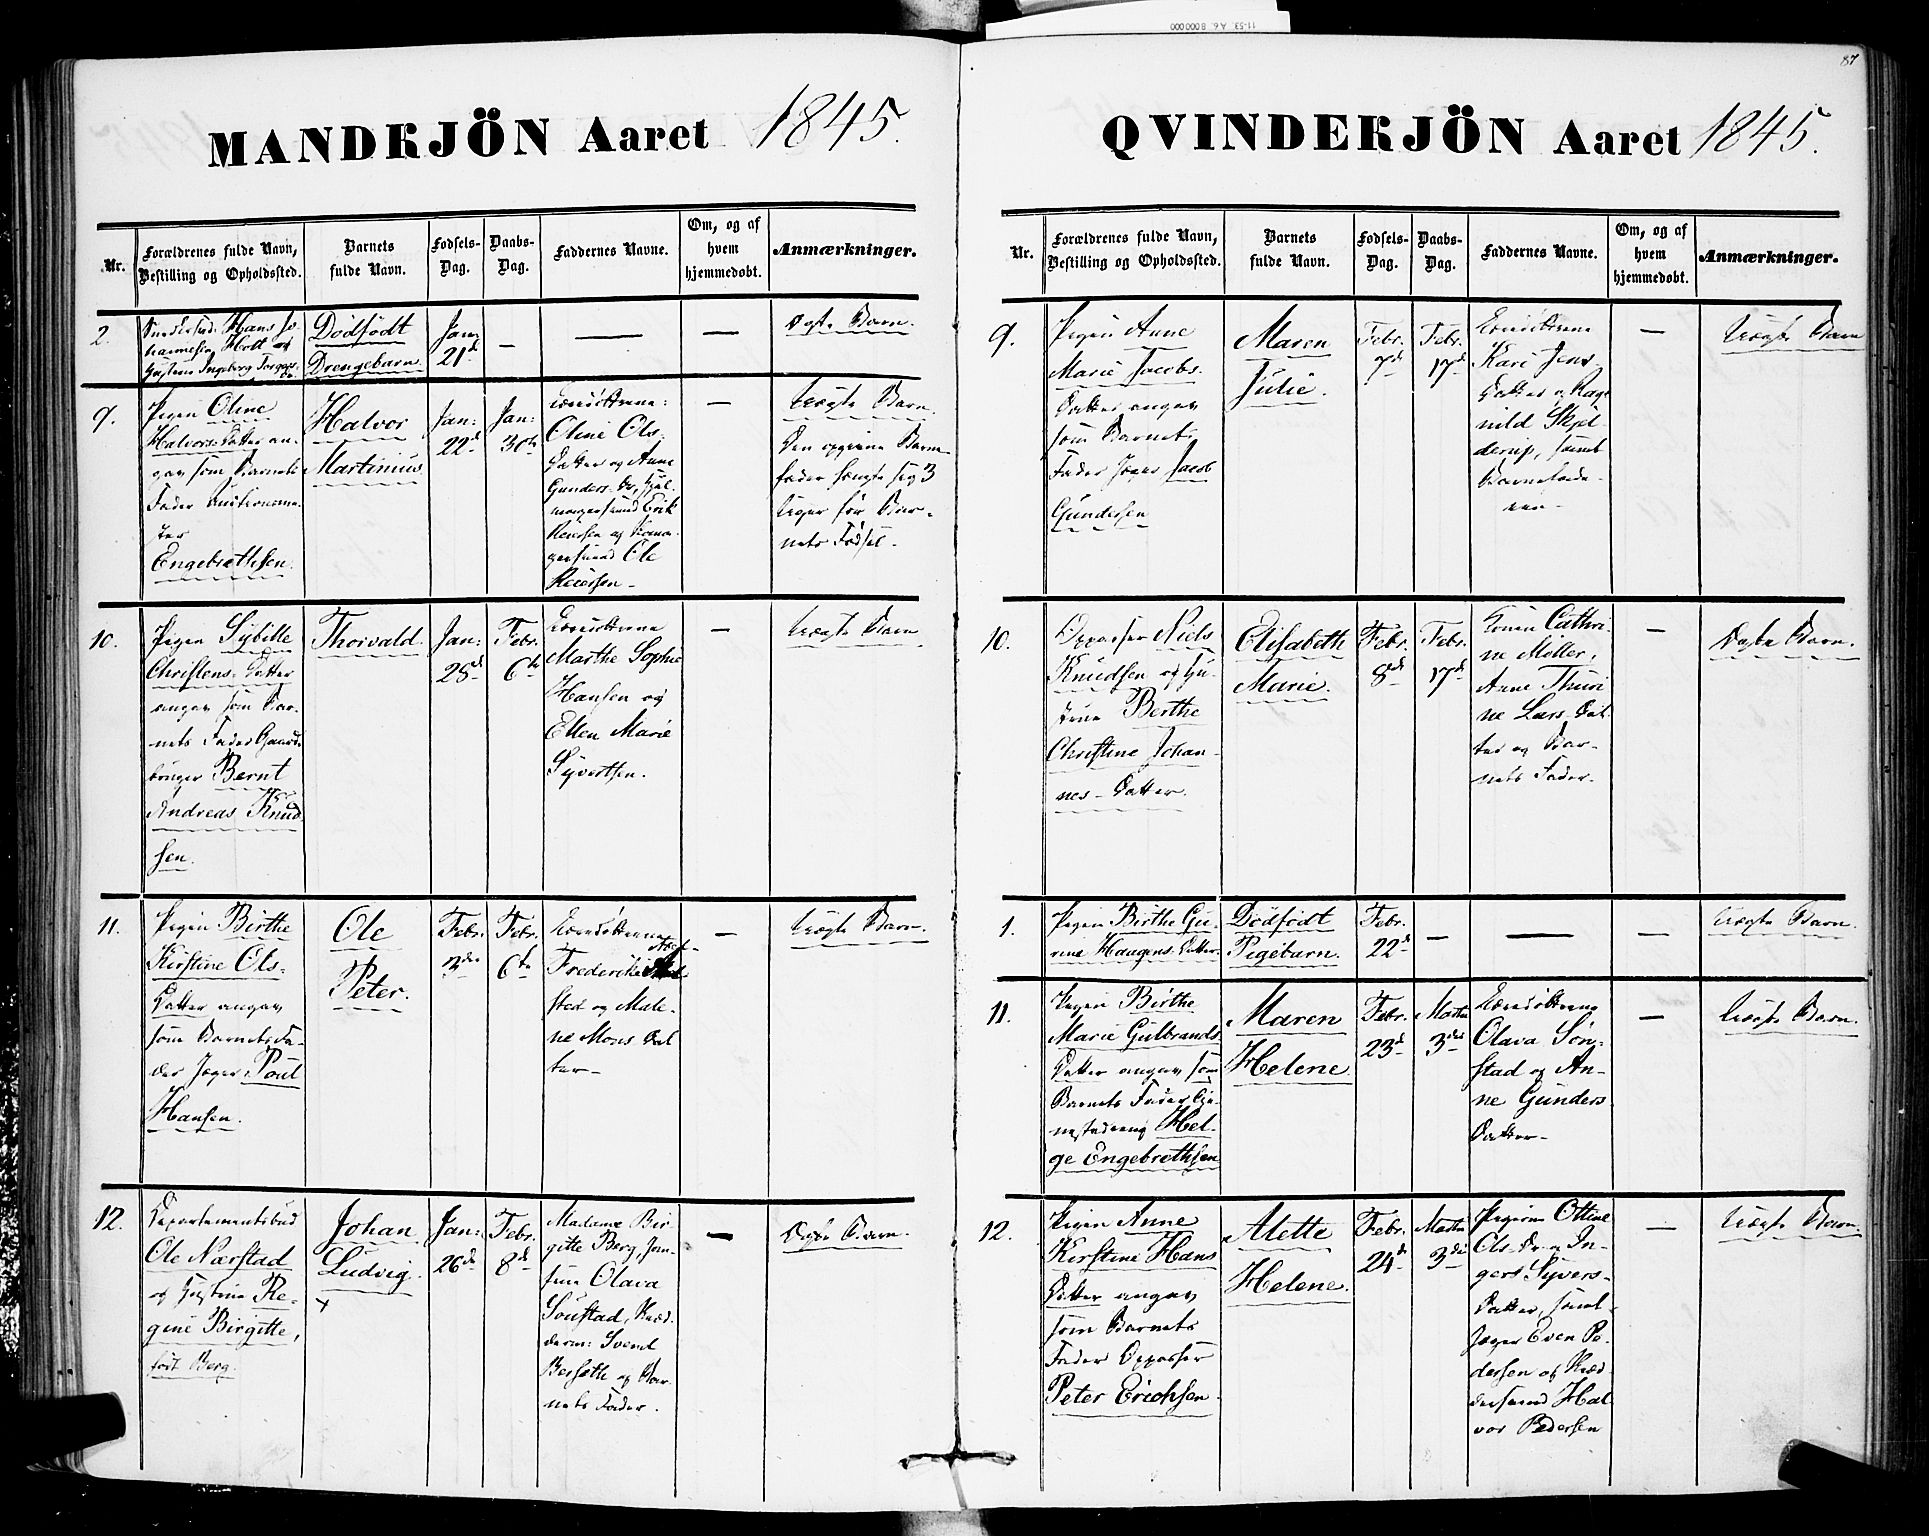 11-53. A6. 8000000
87
MANDKJÖN Aaret 1845.
Nr.
Forældrenes fulde Navn,
Bestilling og Opholdssted.
Barnets
fulde Navn.
Fødsels-
Dag.
Daabs-
Dag.
Faddernes Navne.
Om, og af
hvem
hjemmedøbt.
Anmærkninger.
2.
Hans Jo-
hannesen Holt og
Hustru Ingeborg Torgers-
Dødfødt
Drengebarn
Jan:
21de
—
—
—
Ægte Barn.
9.
Pigen Oline
Halvors-Datter an-
gav som Barnets
Fader
Engebrethsen.
Halvor
Martinius.
Jan:
22de
Jan:
30te
Oline Ols-
Datter og Anne
Gunders Dr,
Erik
Reiersen og
Ole
Reiersen -
—
Uægte Barn.
Den opgivne Barne-
fader hængte sig 3
Uger før Bar-
nets Fødsel -
10.
Pigen Sybille
Christens-Datter
angav som Bar-
nets Fader Gaard-
bruger Bernt
Andreas Knud
sen.
Thorvald.
Jan:
Febr.
6te
Marthe Sophie
Hansen og
Ellen Marie
Syvertsen.
—
Uægte Barn
11.
Pigen Birthe
Kirstine Ols-
Datter angav
som Barnets Fa-
der Jæger Poul
Hansen.
Ole
Peter.
Febr.
3die
Febr.
6te
Frederikke
sted og Male-
ne Mons Dat
ter -
—
Uægte Barn.
12.
Departementsbud
Ole Nærstad
og Hustru Re-
gine Birgitte,
født Berg.
Johan
Ludvig.
+
Jan:
26de
Febr.
8de
Madame Bir
gitte Berg, Jom-
fru Olava
Sønstad,
Svend
Berseth og Bar-
nets Fader.
—
Ægte Barn.
QVINDEKJÖN Aaret 1845.
Nr.
Forældrenes fulde Navn,
Bestilling og Opholdssted.
Barnets
fulde Navn.
Fødsels-
Dag.
Daabs-
Dag.
Faddernes Navne.
Om, og af
hvem
hjemmedøbt.
Anmærkninger.
9.
Pigen Anne
Marie Jacobs-
Datter angav
som Barnets
Fader Jæger Jacob
Gundersen
Maren
Julie.
Febr.
7de
Febr.
17de
Kari Jens-
Datter og Rag
nild Skjel-
derup, samt
Barnefade-
ren -
—
Uægte Barn
10.
Opasser Niels
Knudsen og Hu-
stru Berthe
Christine Johan-
nes-Datter.
Elisabeth
Marie.
Febr.
8de
Febr.
17de
Konen Cathri-
ne Møller,
Anne Thuri
ne Lars-Dat-
ter og Bar-
nets Fader.
—
Ægte Barn.
1.
Pigen Birthe Gu-
rine Haagens-Datter
Dødfødt
Pigebarn.
Febr.
22de
—
—
—
Uægte Barn.
11.
Pigen Birthe
Marie Gulbrands
Datter angav som
Barnets Fader Tje-
nestedreng Hel-
ge Engebrethsen
Maren
Helene.
Febr.
23de
Marts
3die
Olava Søn-
stad og An-
ne Gunders-
Datter -
—
Uægte Barn.
12.
Pigen Anne
Kirstine Hans
Datter angav
som Barnets
Fader Oppasser
Peter Erichsen.
Alette
Helene.
Febr.
24de
Marts
3die
Pigerne Ottine
Ols Dr. og In-
geri Syvers-
Datter, samt
Jæger Even Pe-
dersen og
Hal
vor Pedersen
—
Uægte Barn.